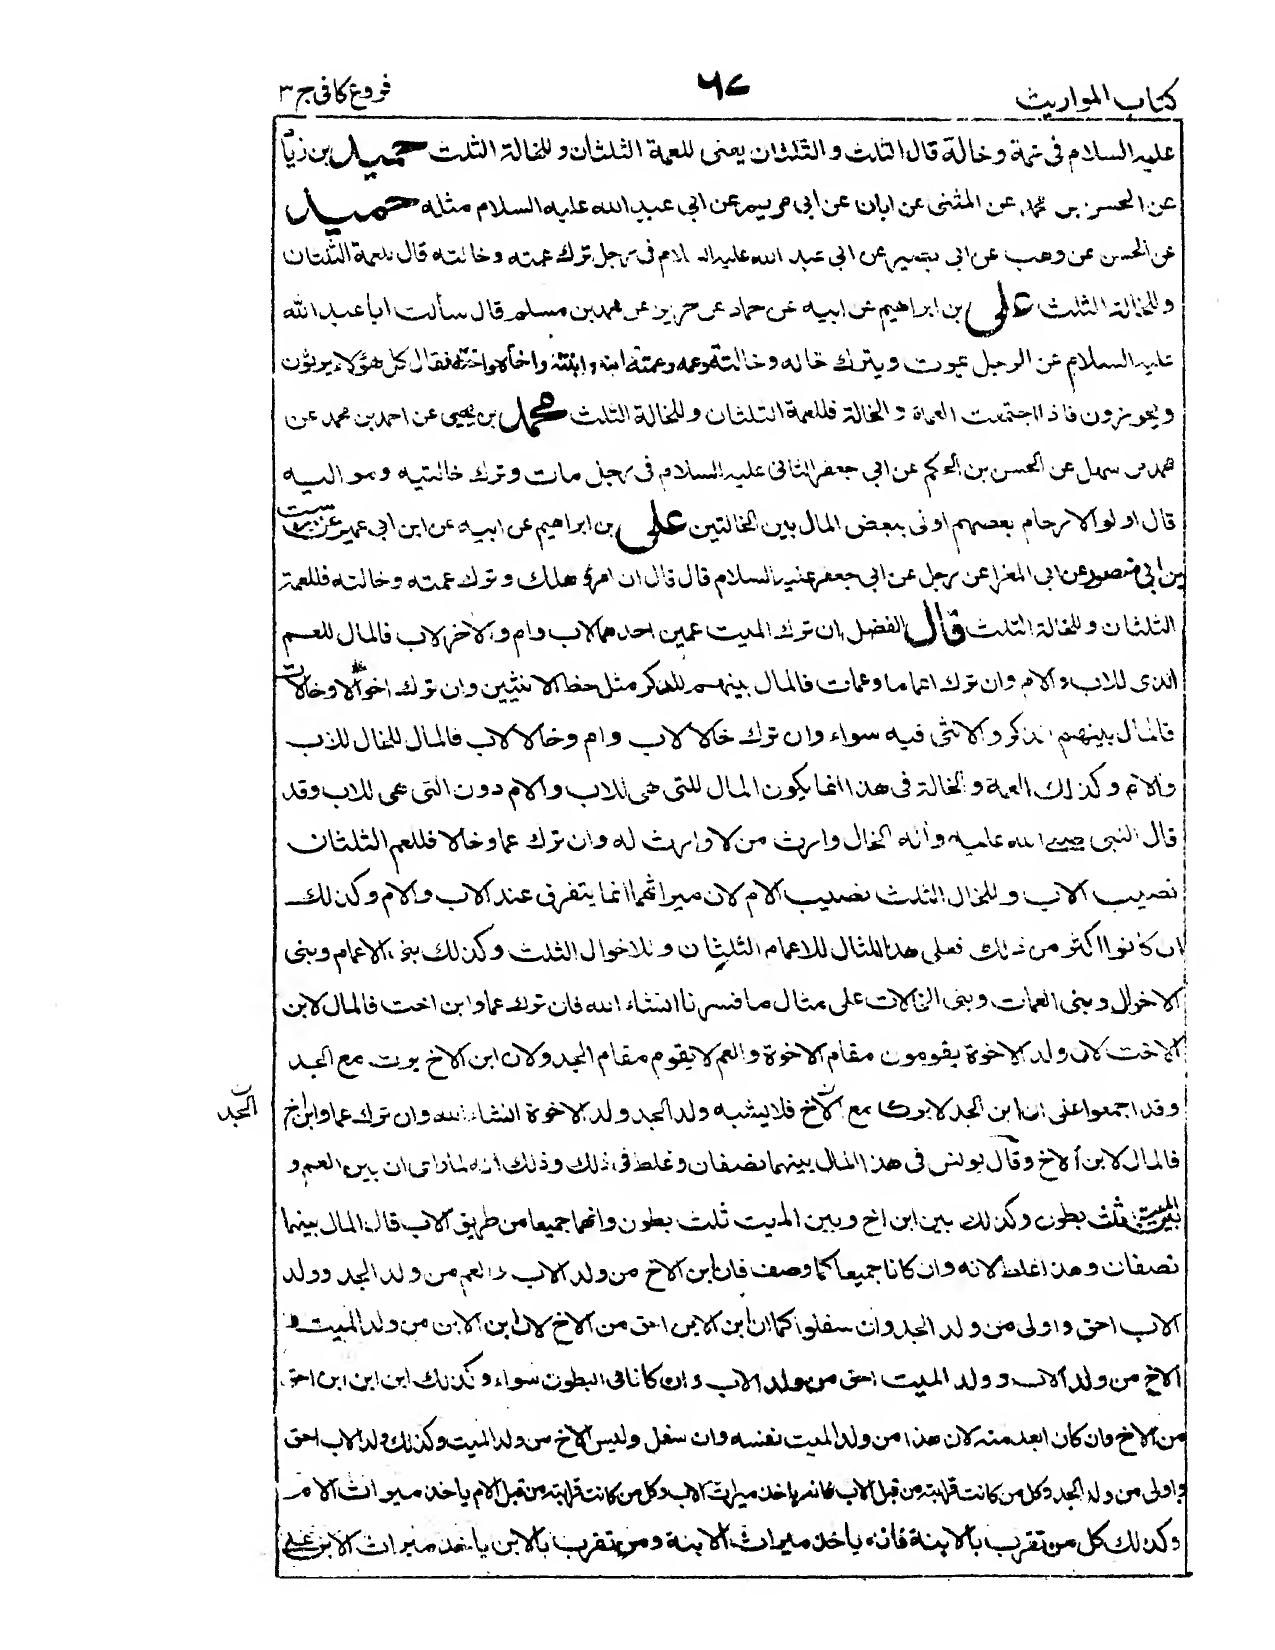 كتاب المواريث ٦٧ فروع كافى ج ٣
عليه السلام فى عمة وخالة قال الثلث والثلثان يعنى للعمة الثلثان وللخالة الثلث حميد بن زياد
عن الحسن بن محمد عن المثنى عن ابان عن ابى مريم عن ابى عبد الله عليه السلام مثله حميد
عن الحسن عن وهب عن ابى بصير عن ابى عبد الله عليه السلام فى رجل ترك عمته وخالته قال للعمة الثلثان
وللخالة الثلث على بن ابراهيم عن ابيه عن حماد عن حريز عن محمد بن مسلم قال سألت ابا عبد الله
عليه السلام عن الرجل يموت ويترك خاله وخالته وعمه وعمته وابنه وابنته واخاه واخته فقال كل هؤلاء يرثون
ويحوزون فاذا اجتمعت العمة والخالة فللعمة الثلثان وللخالة الثلث محمد بن يحيى عن احمد بن محمد عن
محمد بن سهل عن الحسن بن الحكم عن ابى جعفر الثانى عليه السلام فى رجل مات وترك خالتيه ومواليه
قال اولو الارحام بعضهم اولى ببعض المال بين الخالتين على بن ابراهيم عن ابيه عن ابن ابى عمير عن
بن ابى منصور عن ابى المغرا عن رجل عن ابى جعفر عليه السلام قال قال ان امرؤ هلك وترك عمته وخالته فللعمة
الثلثان وللخالة الثلث قال الفضل ان ترك الميت عمين احدهما لاب وام والاخر لاب فالمال للعم
الذى للاب والام وان ترك اعماما وعمات فالمال بينهم للذكر مثل حظ الانثيين وان ترك اخوالا وخالات
فالمال بينهم الذكر والانثى فيه سواء وان ترك خالا لاب وام وخالا لاب فالمال للخال للاب
والام وكذلك العمة والخالة فى هذا انما يكون المال للتى هى للاب والام دون التى هى للاب وقد
قال النبى صلى الله عليه وآله الخال وارث من لا وارث له وان ترك عما وخالا فللعم الثلثان
نصيب الاب وللخال الثلث نصيب الام لان ميراثهما انما يتفرق عند الاب والام وكذلك
ان كانوا اكثر من ذلك فعلى هذا المثال للاعمام الثلثان وللاخوال الثلث وكذلك بنى الاعمام وبنى
الاخوال وبنى العمات وبنى الخالات على مثال ما فسرنا انشاء الله فان ترك عما وابن اخت فالمال لابن
الاخت لان ولد الاخوة يقومون مقام الاخوة والعم لا يقوم مقام الجد ولان ابن الاخ يرث مع الجد
وقد اجمعوا على ان ابن الجد لا يرث مع الاخ فلا يشبه ولد الجد ولد الاخوة انشاء الله وان ترك عما وابن اخ
الجد
فالمال لابن الاخ وقال يونس فى هذا المال بينهما نصفان وغلط فى ذلك وذلك انه لما راى ان بين العم و
بين الميت ثلث بطون وكذلك بين ابن اخ وبين الميت ثلث بطون وانهما جميعا من طريق الاب قال المال بينهما
نصفان وهذا غلط لانه وان كانا جميعا كما وصف فان ابن الاخ من ولد الاب والعم من ولد الجد وولد
الاب احق واولى من ولد الجد وان سفلوا كما ان ابن الابن احق من الاخ لان ابن الابن من ولد الميت و
الاخ من ولد الاب وولد الميت احق من ولد الاب وان كانا فى البطون سواء وكذلك ابن ابن ابن احق
من الاخ وان كان ابعد منه لان هذا من ولد الميت نفسه وان سفل وليس الاخ من ولد الميت وكذلك ولد الاب احق
واولى من ولد الجد وكل من كانت قرابته من قبل الاب فانه ياخذ ميراث الاب وكل من كانت قرابته من قبل الام ياخذ ميراث الام
وكذلك كل من تقرب بالابنة فانه ياخذ ميراث الابنة ومن تقرب بالابن ياخذ ميراث الابن على